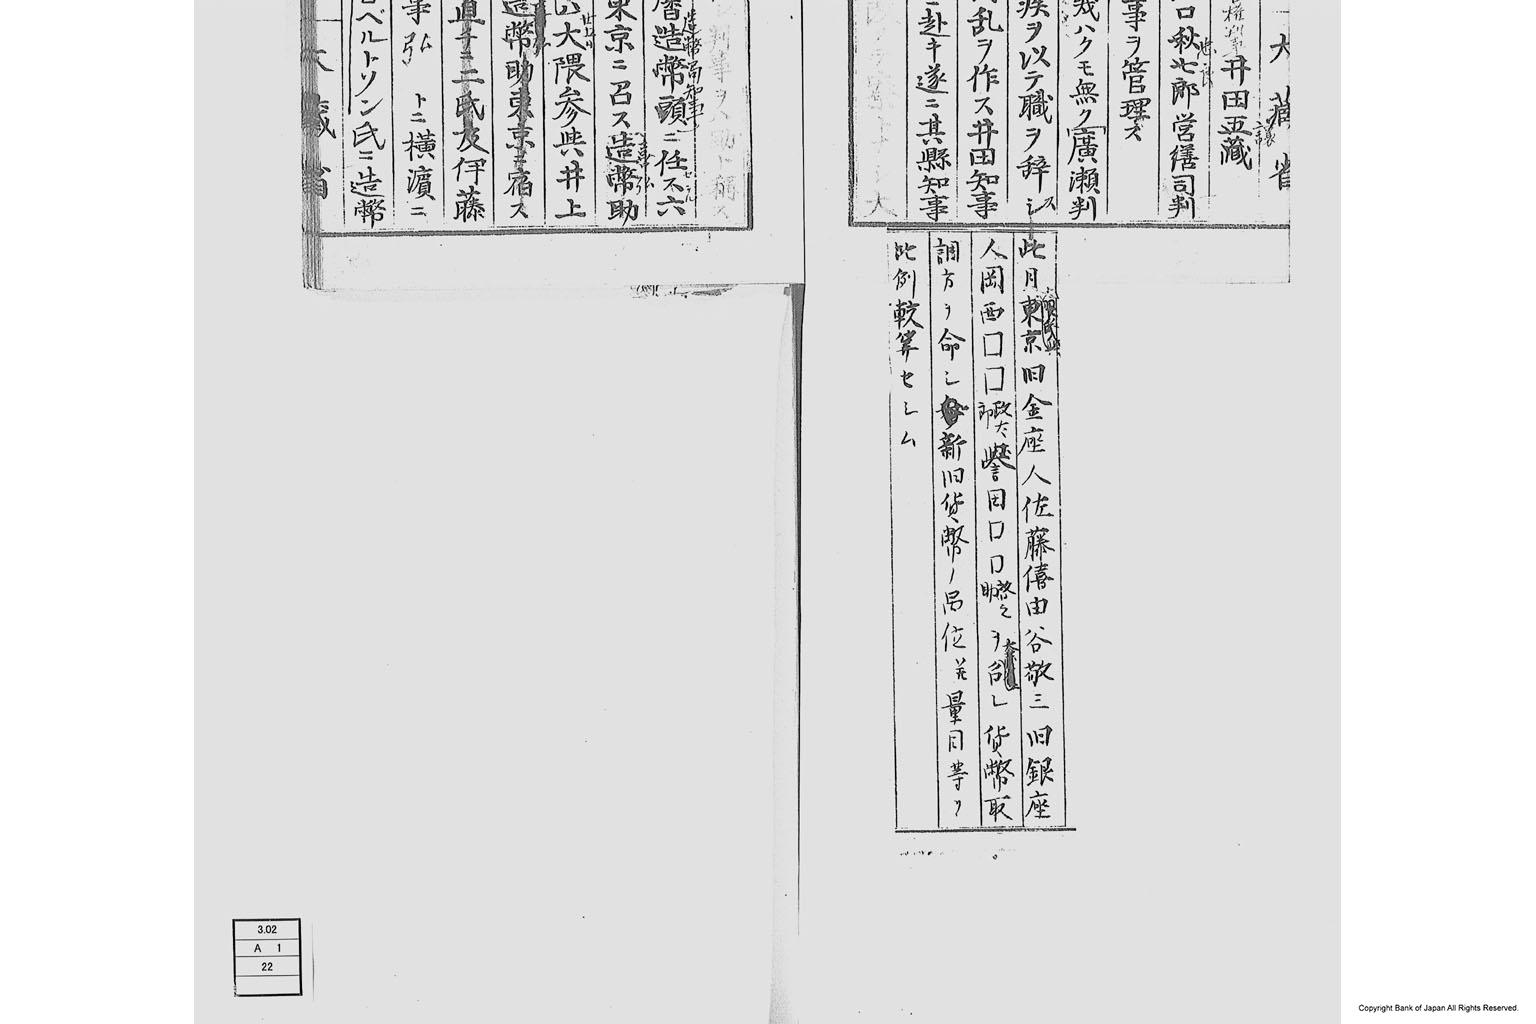 大藏省
権判事井田五藏
口秋七郎営繕司判
事ヲ管理ス
幾ハクモ無ク廣瀬判
疾ヲ以テ職ヲ辞シ
乱ヲ作ス井田知事
ニ赴キ遂ニ其縣知事
此月東京旧金座人佐藤僖由谷敬三旧銀座
人岡西口口政太郎誉田口口啓之助ヲ
シ貨幣取
調方ヲ命シ新旧貨幣ノ品位并量目等ヲ
比例較算セシム
判事ヲ助ト稱ス
造幣局知事
暦造幣頭ニ任ス六
東京ニ召ス造幣助
大隈参與井上
造幣助東京ニ宿ス
直チニ二氏及伊藤
事弘ムトニ横濱ニ
ロベルトソン氏ニ造幣
大藏省
3.02
A 1
22
Copyright Bank of Japan All Rights Reserved.